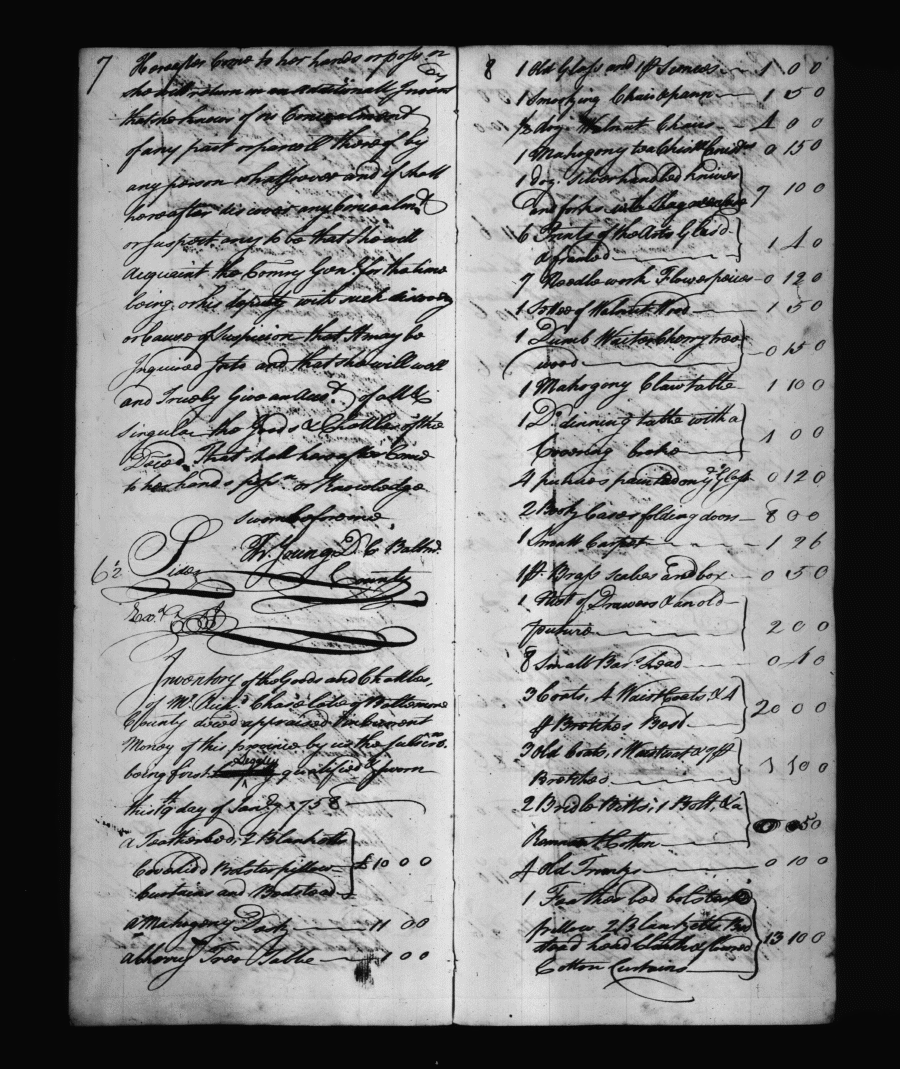 7
Hereafter Come to her hands or poss:on
she will return in an additionall Inven:ty
that she knows of no Concealment
of any part or parcell thereof by
any person whatsoever and if shall
hereafter discover any Concealm:t
or suspect any to be that she will
Acquaint the Comry Gen:l for the time
being or his deputy with such discovery
or Cause of Suspicion that it may be
Inquired Into and that she will well
and Truely Give an Acc:t of all &
singular the Goods & Chattles of the
Deced That shall hereafter Come
to her hands poss:n or Knowledge
sworn before me
Young D C Baltim:r
County
Inventory of the Goods and Chattles
of Mr Rich:d Chase late of Baltemore
County deced appraised in Current
Money of this province by us the subscrs
being first Legally qualified & sworn
this 19th day of Jan:ry 1758
a Featherbed, 2 Blanketts
Coverlidd Bolster pillow
Curtains and Bedstead £10 0 0
a Mahogony Desk 11 00
a Cherry Tree Table 1 00
8
1 Old Glass and 1 pr Sconces 1 0 0
1 Smoaking Chair & pann 1 5 0
½ doz: Walnut Chairs 4 0 0
1 Mahogony tea Chest 0 15 0
1 doz: Silver handled knives
and forks with Shagreen case 7 10 0
6 Prints of the Arts Glasd
& framed 1 4 0
7 Needle work Flower peices 0 12 0
1 of Walnut Wood 1 5 0
1 Dumb Waiter Cherry tree
wood 0 15 0
1 Mahogony Claw table 1 10 0
1 D:o dinning table with a
Covering broke 4 0 0
4 pictures painted on ye Glass 0 12 0
2 Book Cases folding doors 8 0 0
1 Small Carpet 1 2 6
1 pr Brass scales and box 0 5 0
1 Nest of Drawers & an old
2 0 0
8 Small Bars Lead 0 4 0
3 Coats, 4 Waist Coats, & 4
pr Breeches Best 20 0 0
3 Old Coats, 1 Waistcoat & 7 pr
Breeches
2 Bridle Bitts, 1 Bolt, & a
Remnant Cotton 50
4 Old Trunks 0 10 0
1 Feather bed bolster &
pillow 2 Blanketts Bed
stead head Cloth & flowered
Cotton Curtains 13 10 0